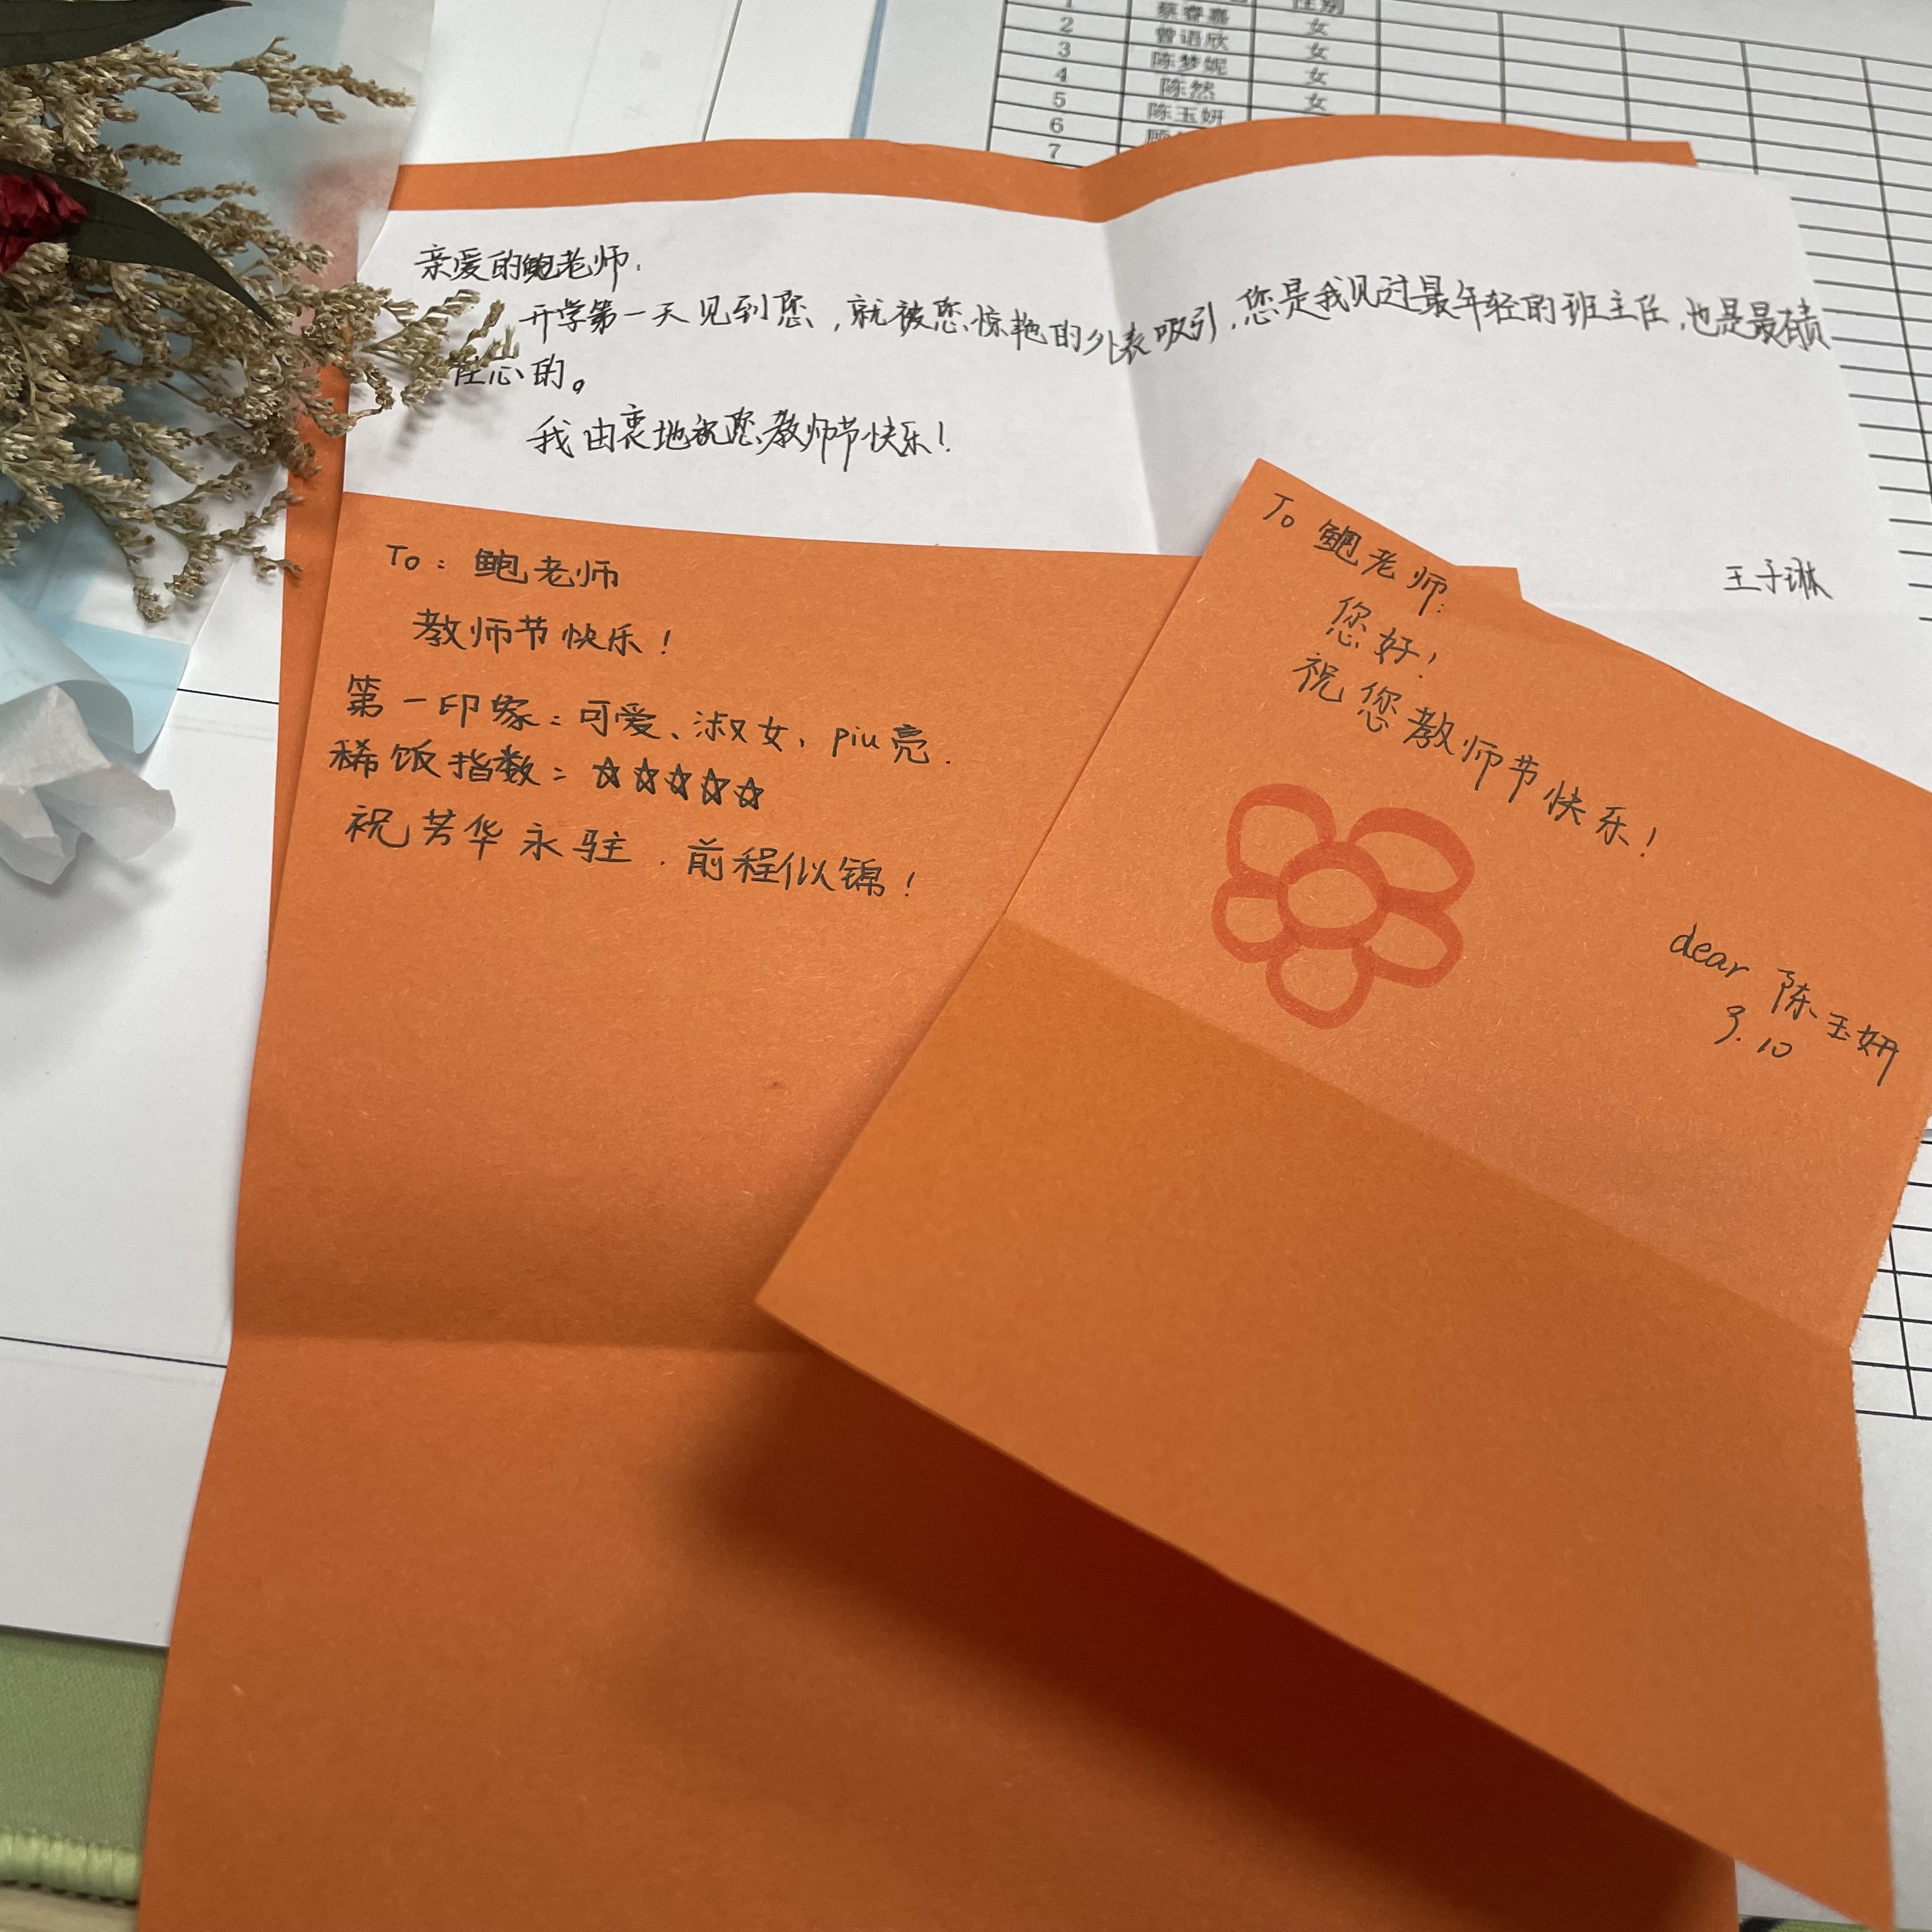 1 蔡睿嘉 性别
2 曾语欣 女
3 陈梦妮 女
4 陈然 女
5 陈玉妍 女
6
7
亲爱的鲍老师:
开学第一天见到您,就被您惊艳的外表吸引,您是我见过最年轻的班主任,也是最有责
任心的。
我由衷地祝您教师节快乐!
王子琳
To: 鲍老师
教师节快乐!
第一印象:可爱、淑女、piu亮.
稀饭指数:☆☆☆☆☆
祝芳华永驻.前程似锦!
To 鲍老师:
您好!
祝您教师节快乐!
dear 陈玉妍
9.10